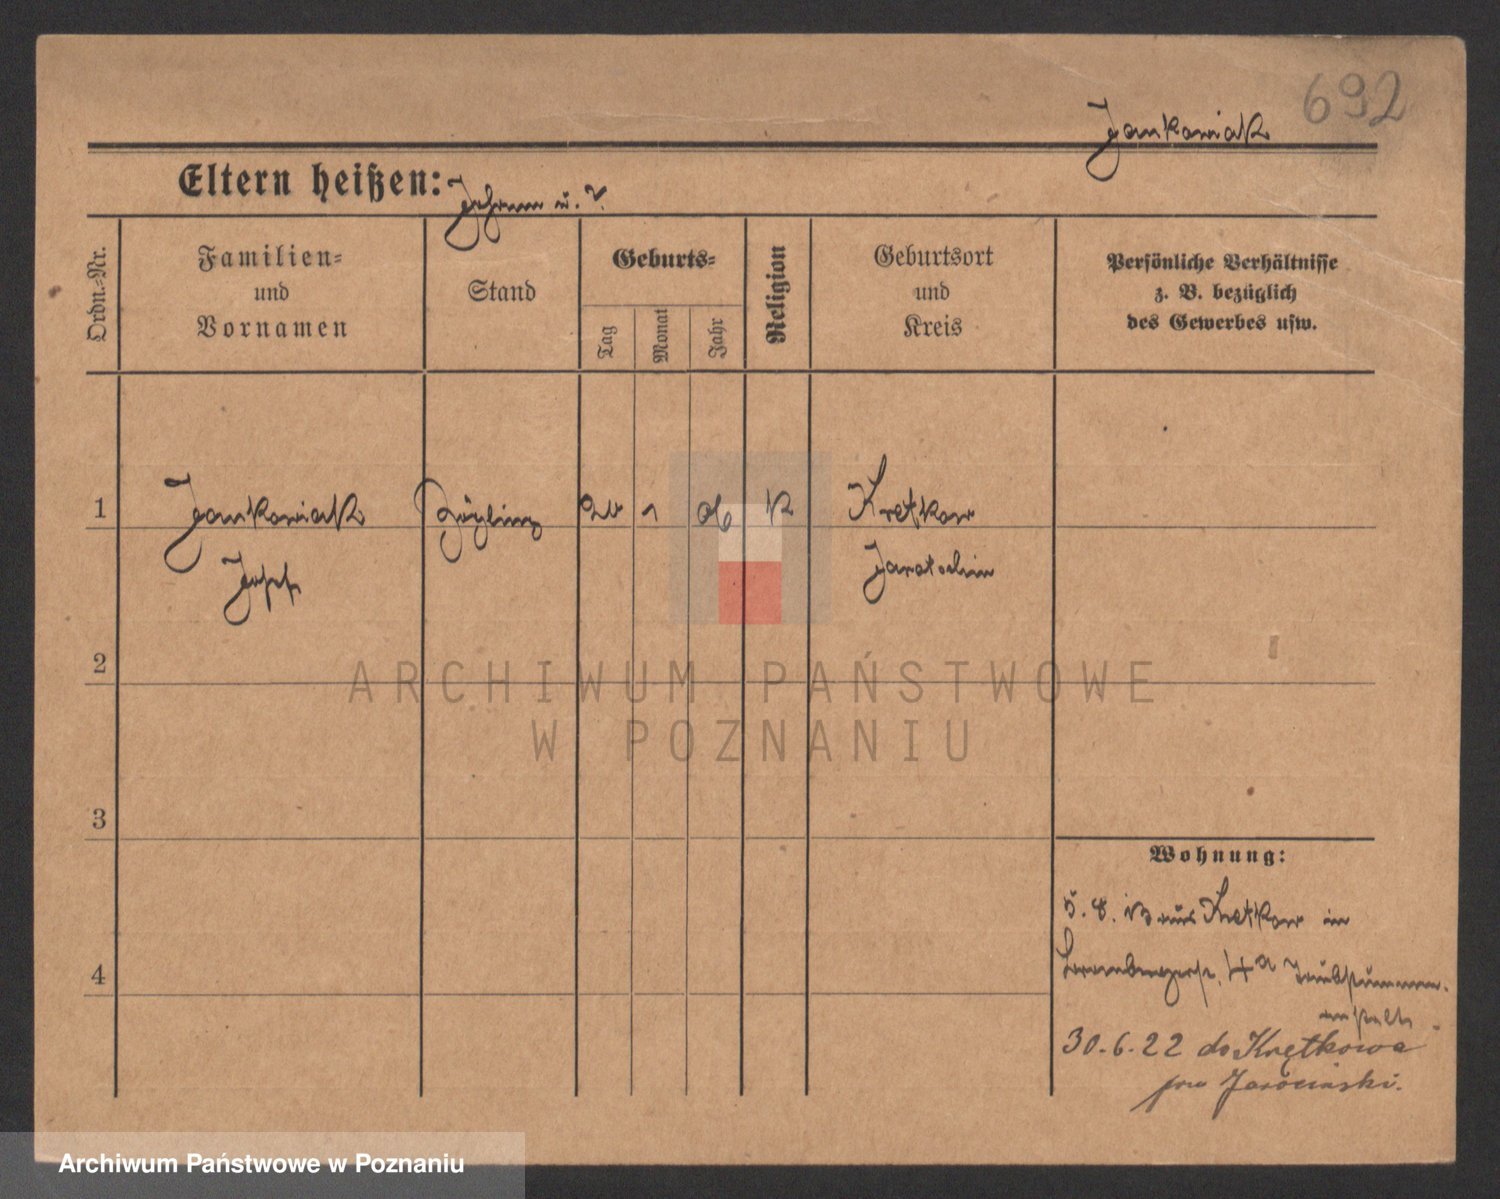 692
Jankowiak
Eltern heißen: Johann u. ?
Ordn.-Nr.
Familien-
und
Vornamen
Stand
Geburts-
Tag
Monat
Jahr
Religion
Geburtsort
und
Kreis
Persönliche Verhältnisse
z. B. bezüglich
des Gewerbes usw.
1
Jankowiak Zögling 1 06 K Kretkow
Josef Jarotschin
2
ARCHIWUM PAŃSTWOWE
W POZNANIU
3
Wohnung:
5. 8. 13 aus Kretkow in
4
4a Taubstummen-
anstalt.
30.6.22 do Krętkowa
pow Jarociński.
Archiwum Państwowe w Poznaniu